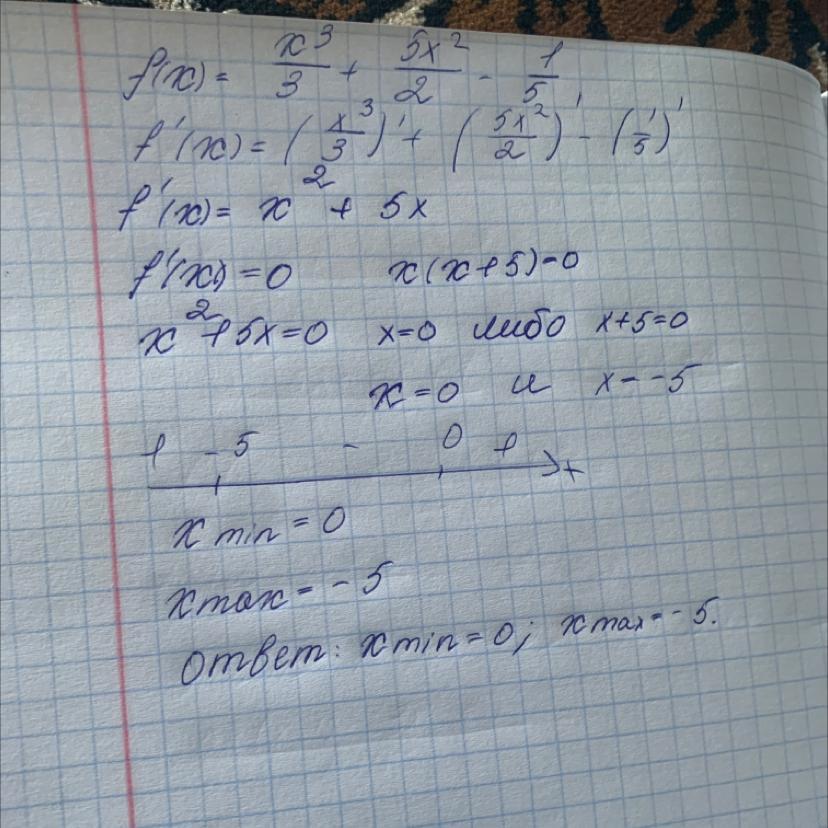 f(x) = x³/3 + 5x²/2 - 1/5
f'(x) = (x³/3)' + (5x²/2)' - (1/5)'
f'(x) = x² + 5x
f'(x) = 0 x(x+5)=0
x² + 5x = 0 x=0 либо x+5=0
x = 0 и x = -5
+ -5 - 0 +
x min = 0
x max = -5
Ответ: x min = 0; x max = -5.